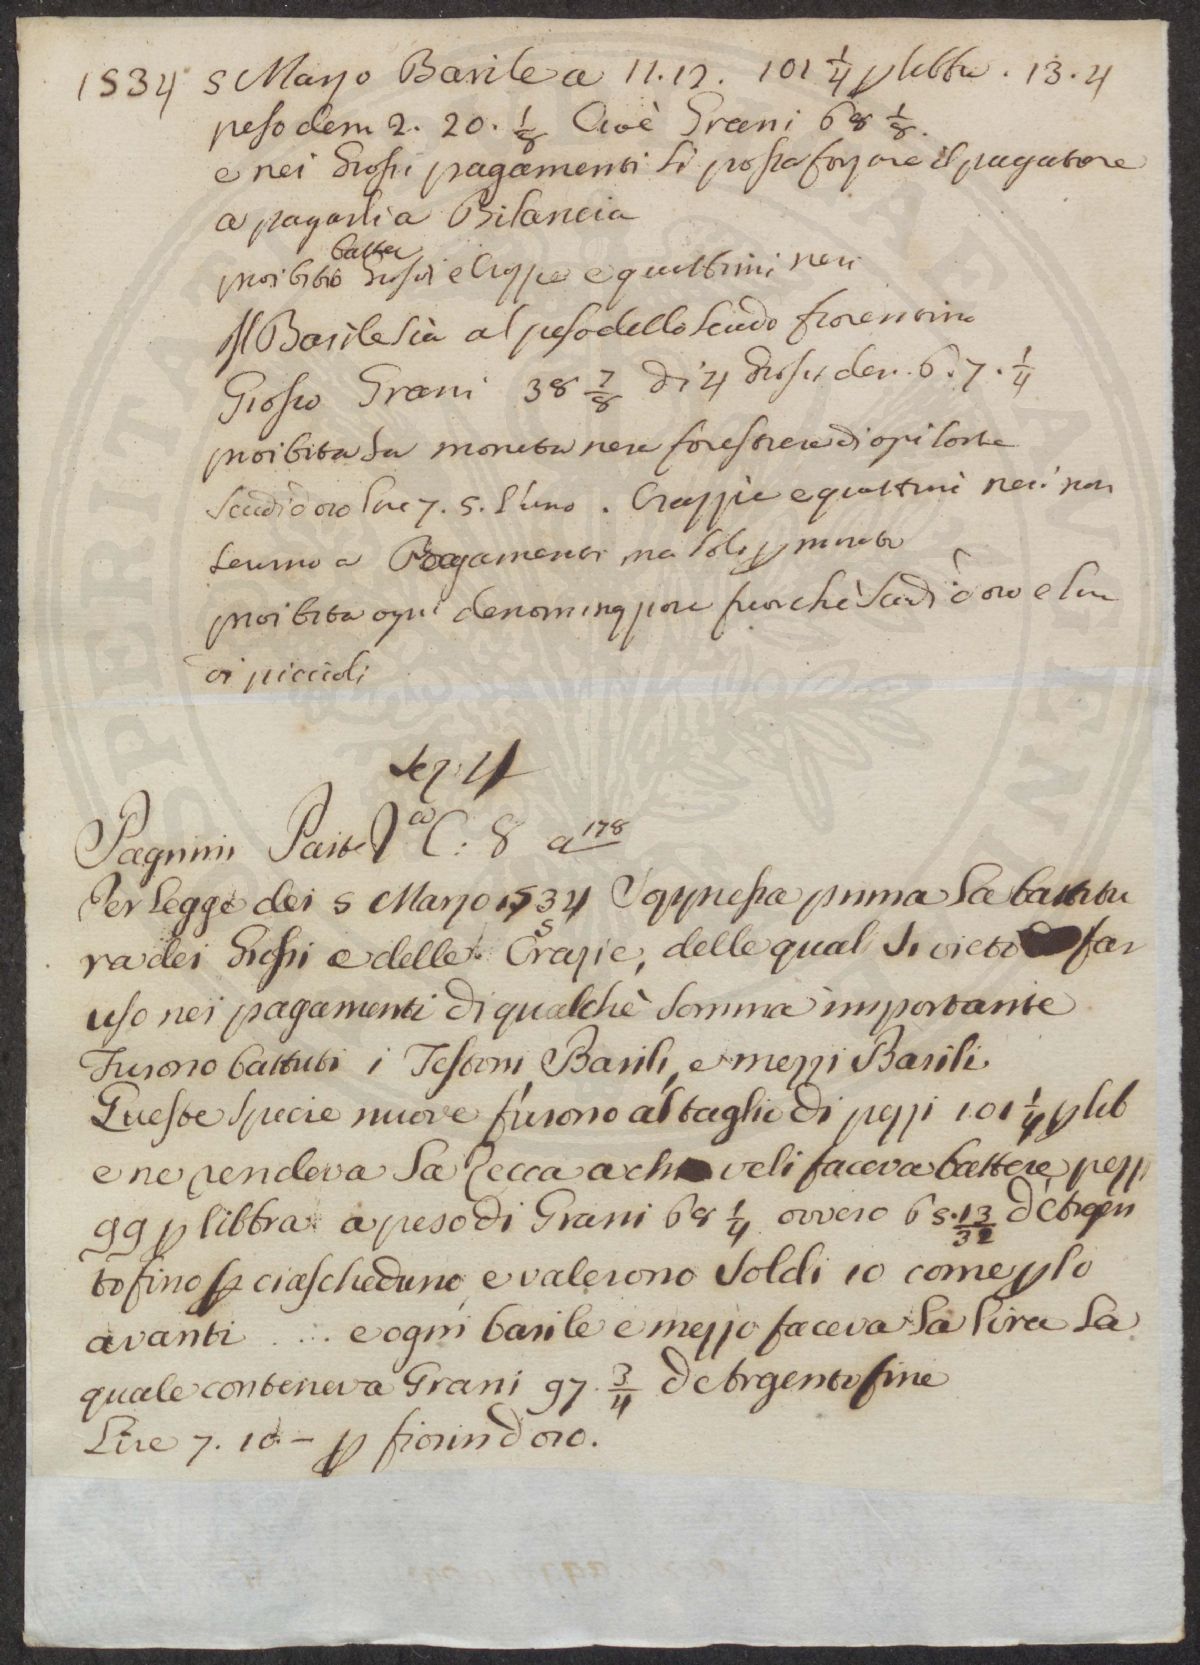 1534 5 Marzo Barile a 11.12. 101 1/4 p libbra . 13.4
peso den 2. 20. 1/8 Cioè Grani 68 1/8.
e nei Grossi pagamenti si possa forzare il pagatore
a pagarli a Bilancia
proibito batter Grossi e Crazie e quattrini neri
Il Barile sia al peso dello scudo fiorentino
Grosso Grani 38 7/8 di 4 Grossi den. 6.7.1/4
proibita la moneta nera forestiera di ogni sorte
Scudi d oro lire 7. 5. l'uno . Crazzie e quattrini neri non
servino a Pagamenti ma solo p minuto
proibita ogni denominazione fuorchè Scudi d oro e lire
di piccioli
Pagnini Parte Iᵃ C: 8 a 178
Per Legge dei 5 Marzo 1534 Soppressa prima la battitu
ra dei Grossi e delle Crazie, delle quali si vietò far
uso nei pagamenti di qualchè somma importante
Furono battuti i Testoni, Barili, e mezzi Barili
Queste specie nuove furono al taglio di pezzi 101 1/4 p lib
e ne rendeva la Zecca a chi veli faceva battere pezzi
99 p libbra a peso di Grani 68 1/4 ovvero 65.13/32 d'Argen
to fino p ciascheduno, e valerono Soldi 10 come p lo
avanti .... e ogni barile e mezzo faceva la lira la
quale conteneva Grani 97.3/4 d Argento fine
Lire 7. 10 - p fiorin d oro.